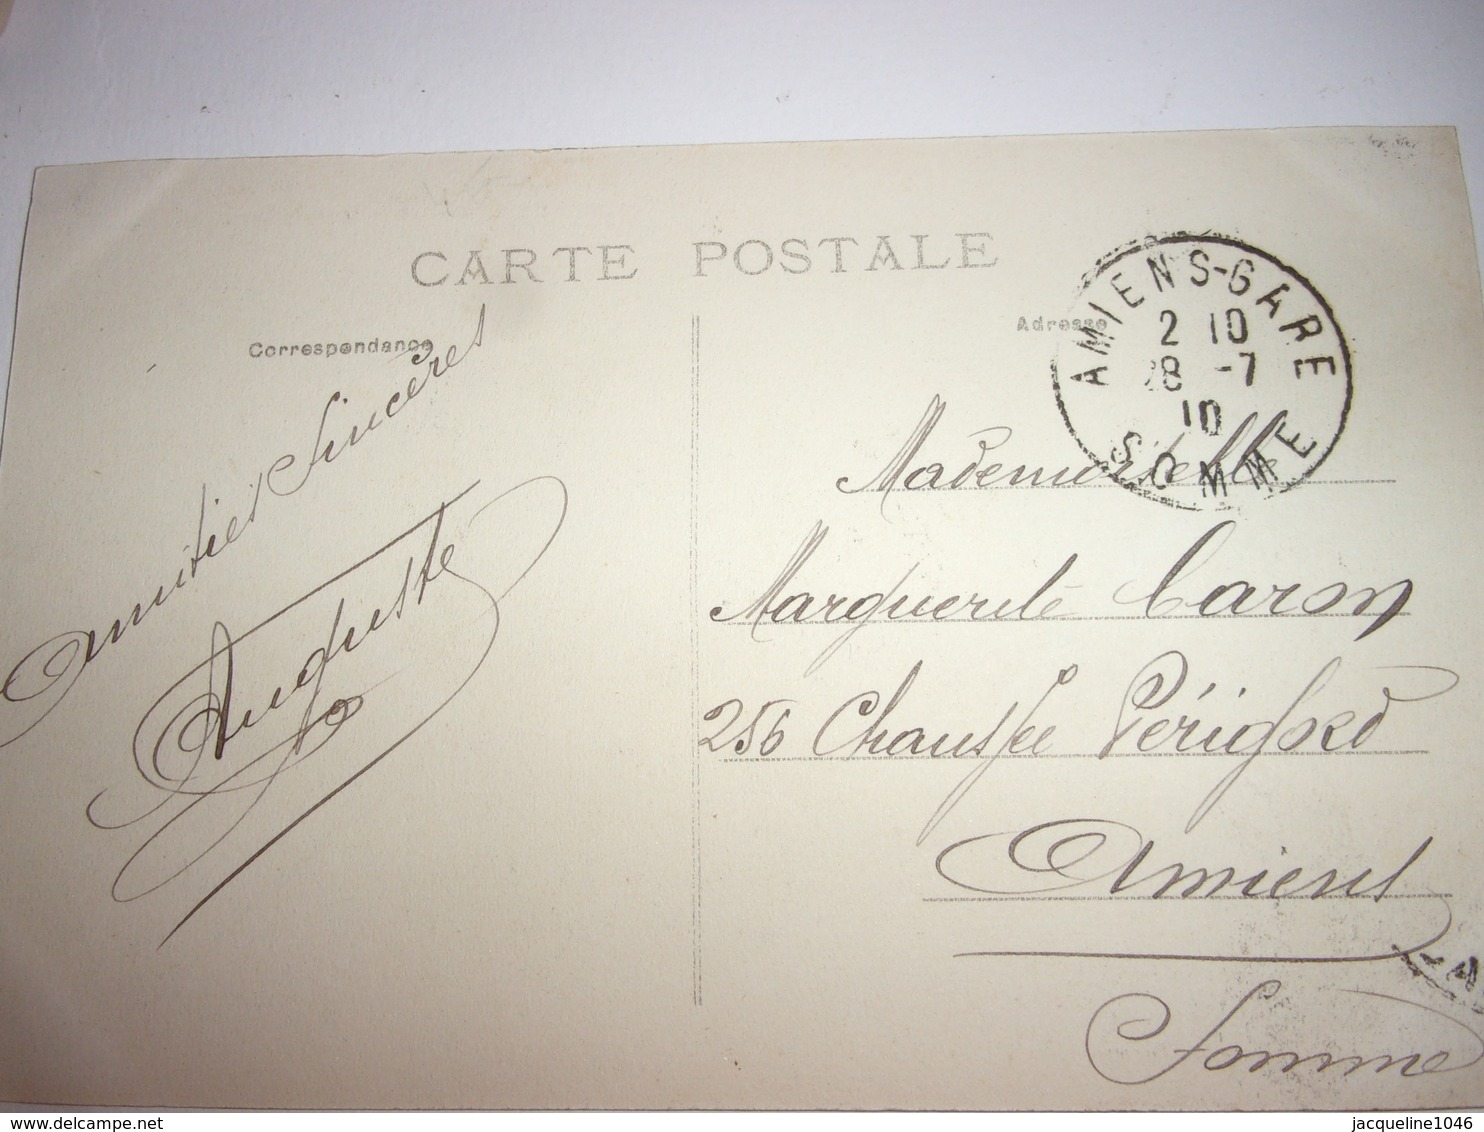 CARTE POSTALE
Correspondance
Adresse
AMIENS-GARE
2 10
28 -7
10
SOMME
Amitiés Sincères
Auguste
Mademoiselle
Marguerite Caron
256 Chaussée Périgord
Amiens
Somme
delcampe.net
jacqueline1046